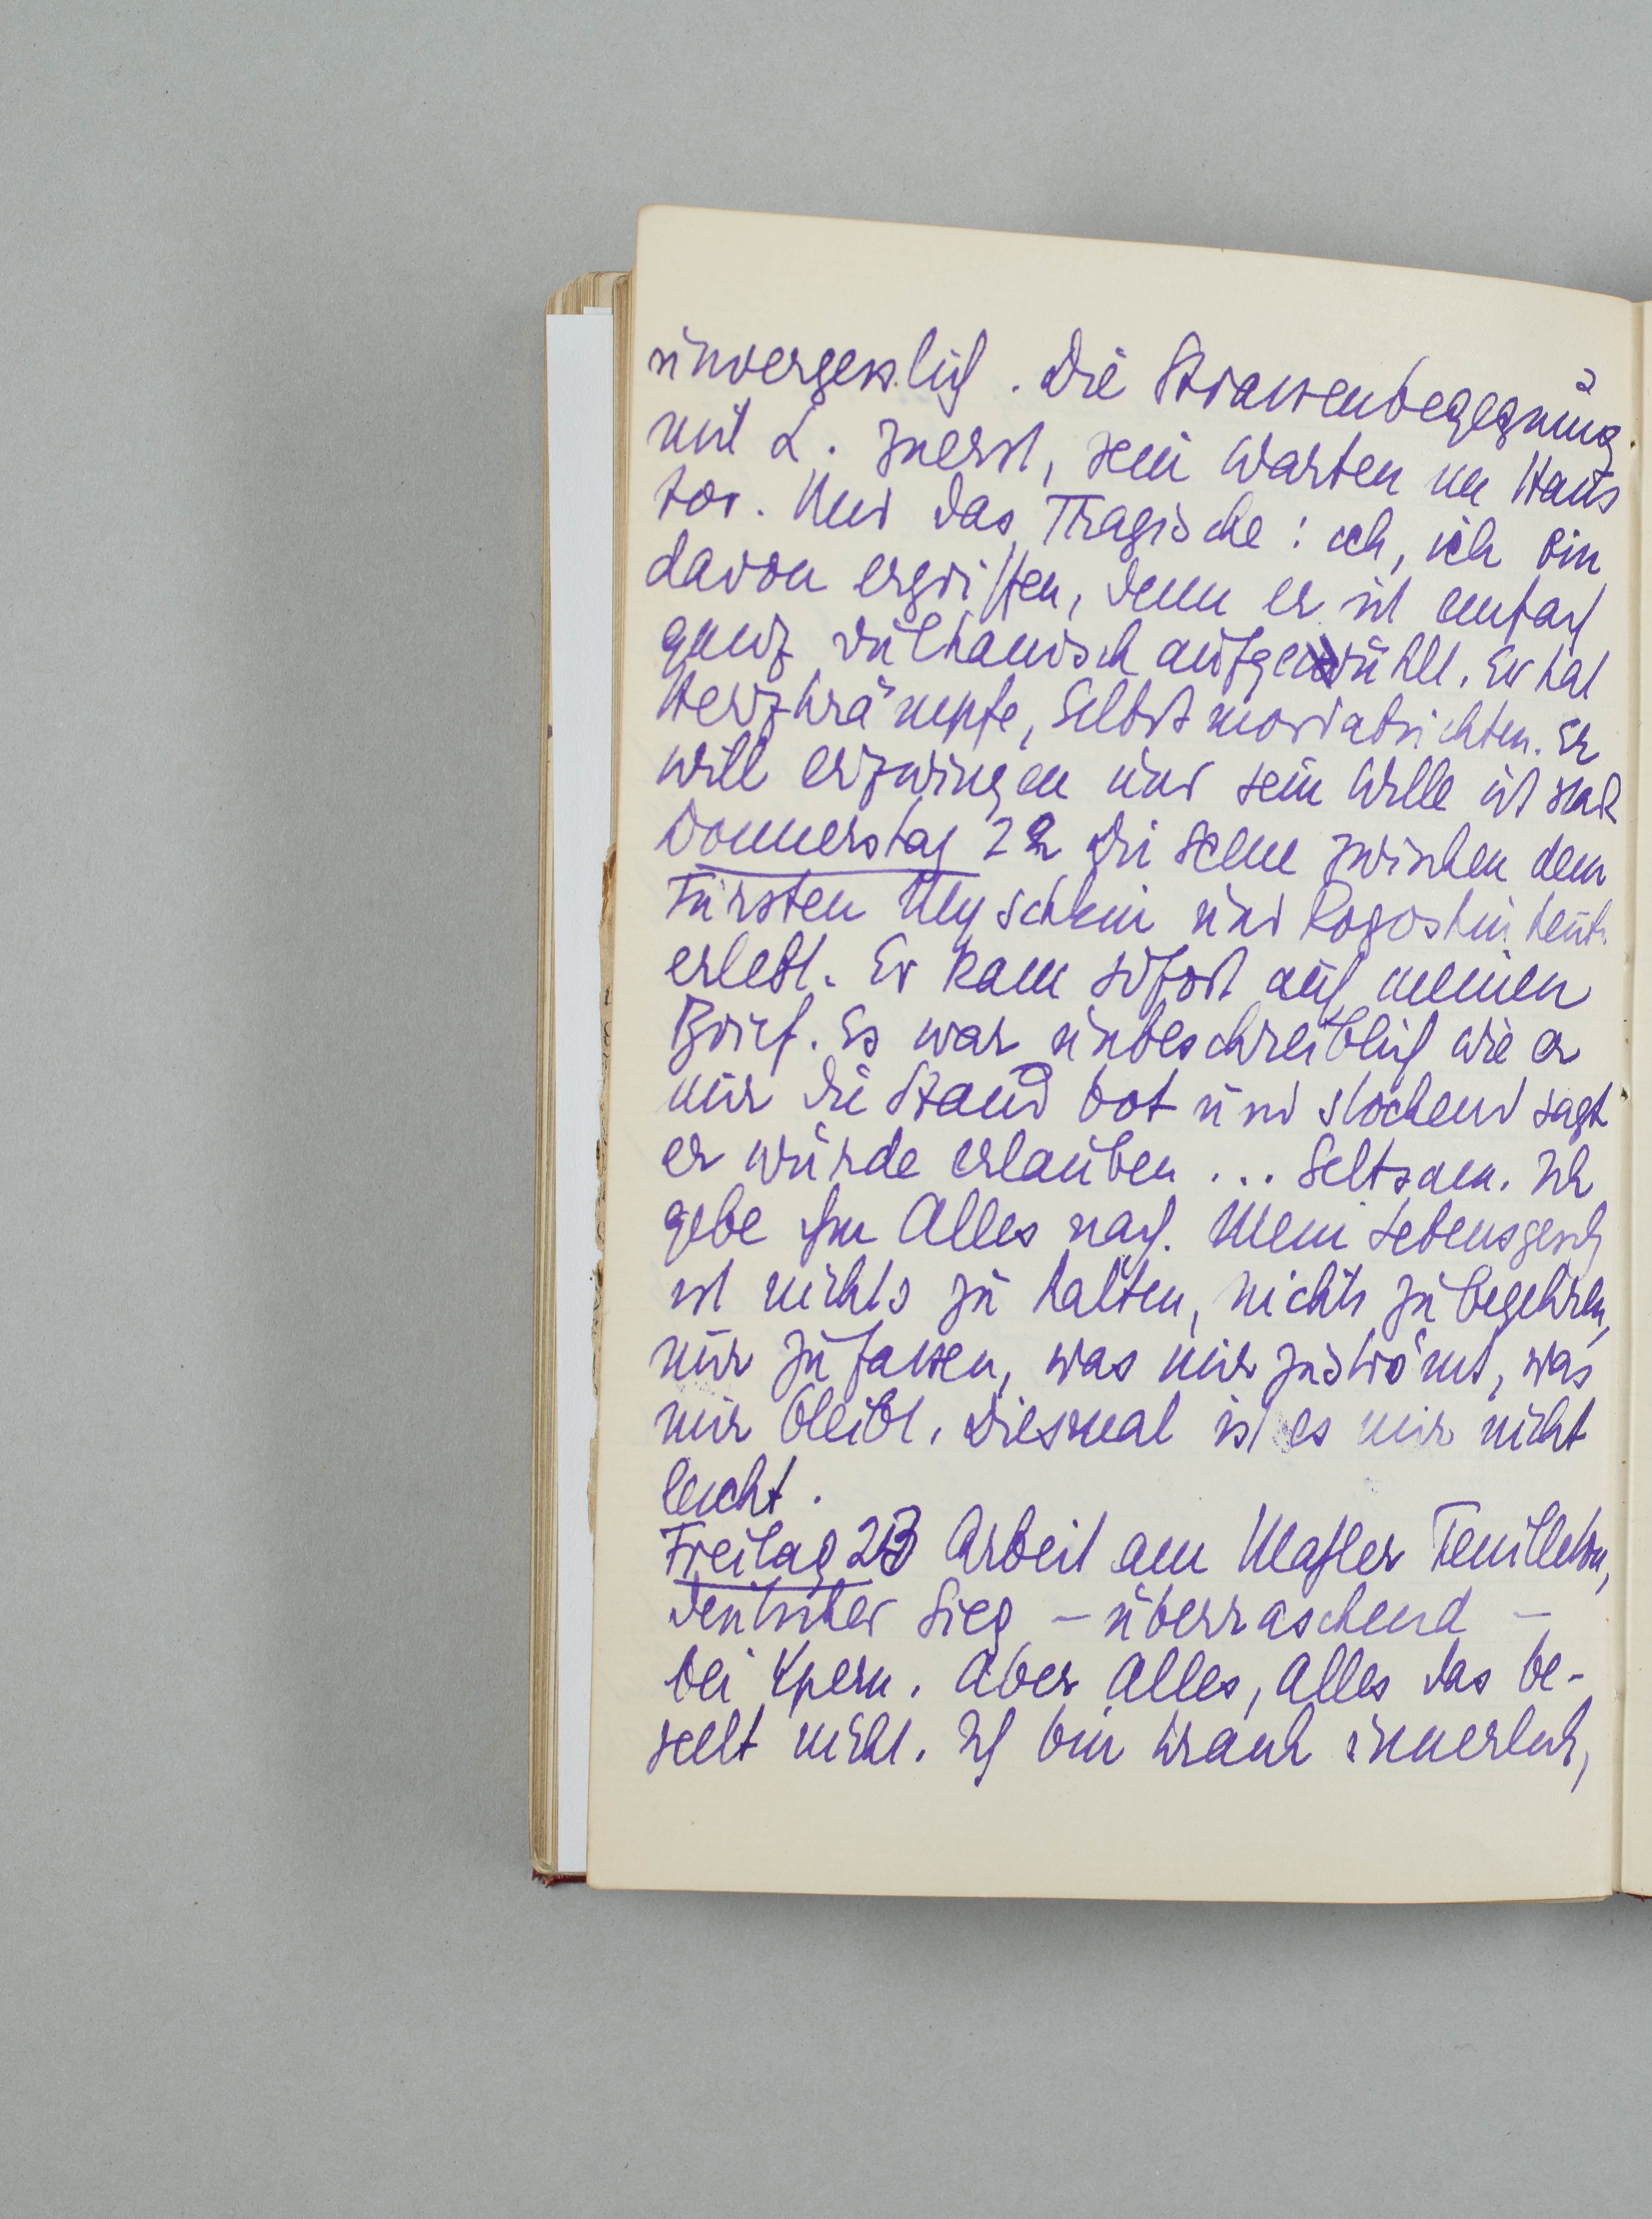 unvergesslich. Die Strassenbegegnung
mit L. zuerst, sein Warten im Haus
tor. Und das Tragische: ich, ich bin
davon ergriffen, denn er ist einfach
ganz vulkanisch aufgewühlt. Er hat
Herzkrämpfe, Selbstmordabsichten. Er
will erzwingen und sein Wille ist stark
Donnerstag 22 Die Scene zwischen dem
Fürsten Myschkin und Rogoshin heute
erlebt. Er kam sofort auf meinen
Brief. Es war unbeschreiblich wie er
mir die Hand bot und stockend sagt
er würde erlauben ... Seltsam. Ich
gebe ihm Alles nach. Mein Lebensgesch
ist nichts zu halten, nichts zu begehren,
nur zu fassen, was mir zuströmt, was
mir bleibt. Diesmal ist es mir nicht
leicht.
Freitag 23 Arbeit am Mahler Feuilleton,
deutscher Sieg – überraschend –
bei Ypern. Aber Alles, Alles das be-
seelt nicht. Ich bin krank innerlich,